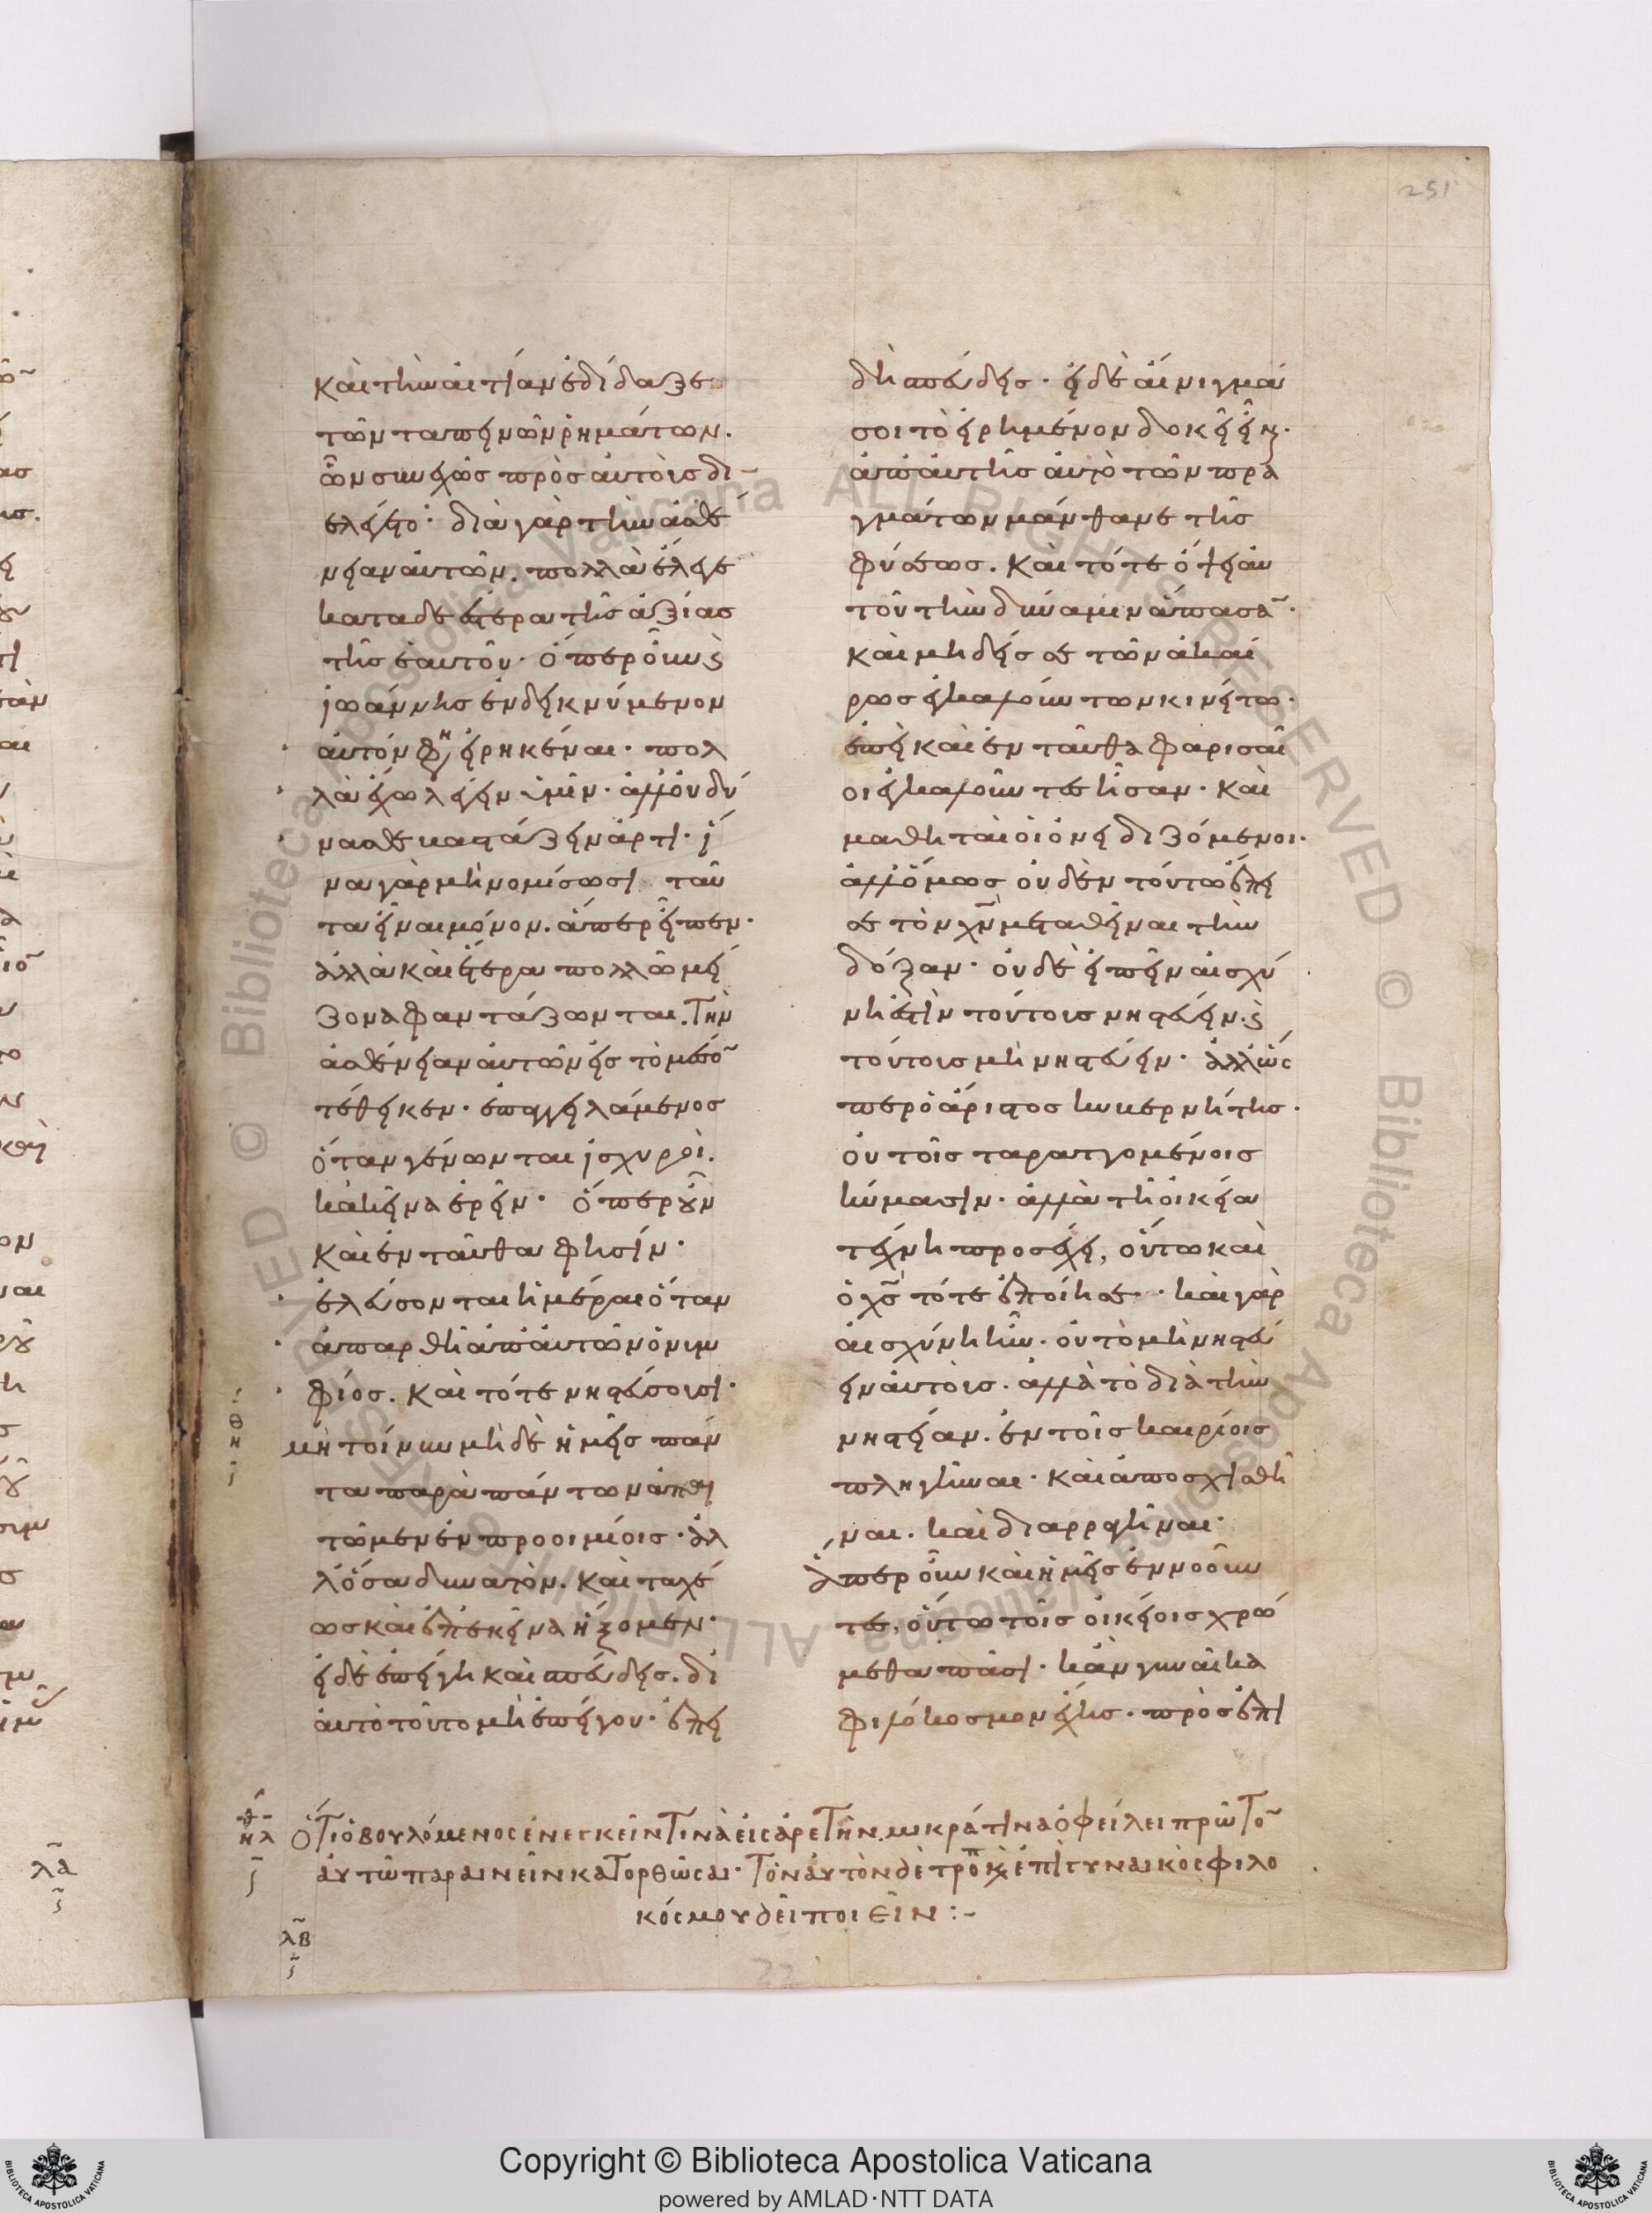 251
καὶ τὴν αἰτίαν ἐδίδαξε
τῶν ταπεινῶν ῥημάτων.
ὧν συνεχῶς πρὸς αὐτοὺς δι
ελέγετο· διὰ γὰρ τὴν ἀσθέ
νειαν αὐτῶν. πολλὰ ἔλεγε
καταδεέστερα τῆς ἀξίας
τῆς ἑαυτοῦ· ὅπερ οὖν καὶ
ἰωάννης ἐνδεικνύμενον
αὐτόν φησιν εἰρηκέναι· πολ
λὰ ἔχω λέγειν ὑμῖν· ἀλλ' οὐ δύ
νασθε βαστάζειν ἄρτι· ἵ
να γὰρ μὴ νομίσωσι ταῦ
τα εἶναι μόνον. ἅπερ εἶπεν·
ἀλλὰ καὶ ἕτερα πολλῶ μεί
ζονα φαντάζωνται. τὴν
ἀσθένειαν αὐτῶν εἰς τὸ μέσον
τέθεικεν· ἐπαγγειλάμενος
ὅταν γένωνται ἰσχυροὶ.
κἀκεῖνα ἐρεῖν· ὅπερ οὖν
καὶ ἐνταῦθα φησίν·
ἐλεύσονται ἡμέραι ὅταν
ἀπαρθῆ ἀπ' αὐτῶν ὁ νυμ
φίος. καὶ τότε νηστεύσουσι·
μὴ τοίνυν μὴ δὲ ἡμεῖς πάν
τα παρὰ πάντων ἀπαι
τῶμεν ἐν προοιμίοις· ἀλ
λ' ὅσα δυνατὸν. καὶ ταχέ
ως καὶ ἐπ' ἐκεῖνα ἥξομεν·
εἰ δὲ ἐπείγη καὶ σπεύδεις. δι'
αὐτὸ τοῦτο μὴ ἐπείγου· ἐπει
δὴ σπεύδεις· εἰ δὲ αἴνιγμά
σοι τὸ εἰρημένον δοκεῖ εἶναι·
ἀπ' αὐτῆς αὐτὸ τῶν πρα
γμάτων μάνθανε τῆς
φύσεως. καὶ τότε ὄψει αὐ
τοῦ τὴν δύναμιν ἅπασαν·
καὶ μηδείς σε τῶν ἀκαί
ρως ἐγκαλούντων κινείτω·
ἐπεὶ καὶ ἐνταῦθα φαρισαῖ
οι ἐγκαλοῦντες ἦσαν· καὶ
μαθηταὶ οἱ ὀνειδιζόμενοι·
ἀλλ' ὅμως οὐδὲν τούτω ἔπει
σε τὸν χν μεταθεῖναι τὴν
δόξαν· οὐδὲ εἰπεῖν αἰσχύ
νη ἐστὶν τούτους νηστεύειν. καὶ
τούτους μὴ νηστεύειν· ἀλλ' ὥς
περ ὁ ἄριστος κυβερνήτης·
οὐ τοῖς ταραττομένοις
κύμασιν· ἀλλὰ τῆ οἰκεία
τέχνη προσέχει, οὕτω καὶ
ὁ χς τότε ἐποίησε· καὶ γὰρ
αἰσχύνη ἦν. οὐ τὸ μὴ νηστεύ
ειν αὐτοὺς. ἀλλὰ τὸ διὰ τὴν
νηστείαν. ἐν τοῖς καιρίοις
πληγῆναι· καὶ ἀποσχισθῆ
ναι. καὶ διαρραγῆναι·
ἅπερ οὖν καὶ ἡμεῖς ἐννοοῦν
τες, οὕτω τοῖς οἰκείοις χρώ
μεθα πᾶσι· κἂν γυναῖκα
φιλόκοσμον ἔχης. πρὸς ἐπι
Ὅτι ὁ βουλόμενος ἐνεγκεῖν τινὰ εἰς ἀρετὴν. μικρά τινα ὀφείλει πρῶτον
αὐτῶ παραινεῖν κατορθῶσαι· τὸν αὐτὸν δὲ τρόπον καὶ ἐπὶ γυναικὸς φιλο
κόσμου δεῖ ποιεῖν :-
λα
λβ
Copyright © Biblioteca Apostolica Vaticana
powered by AMLAD·NTT DATA